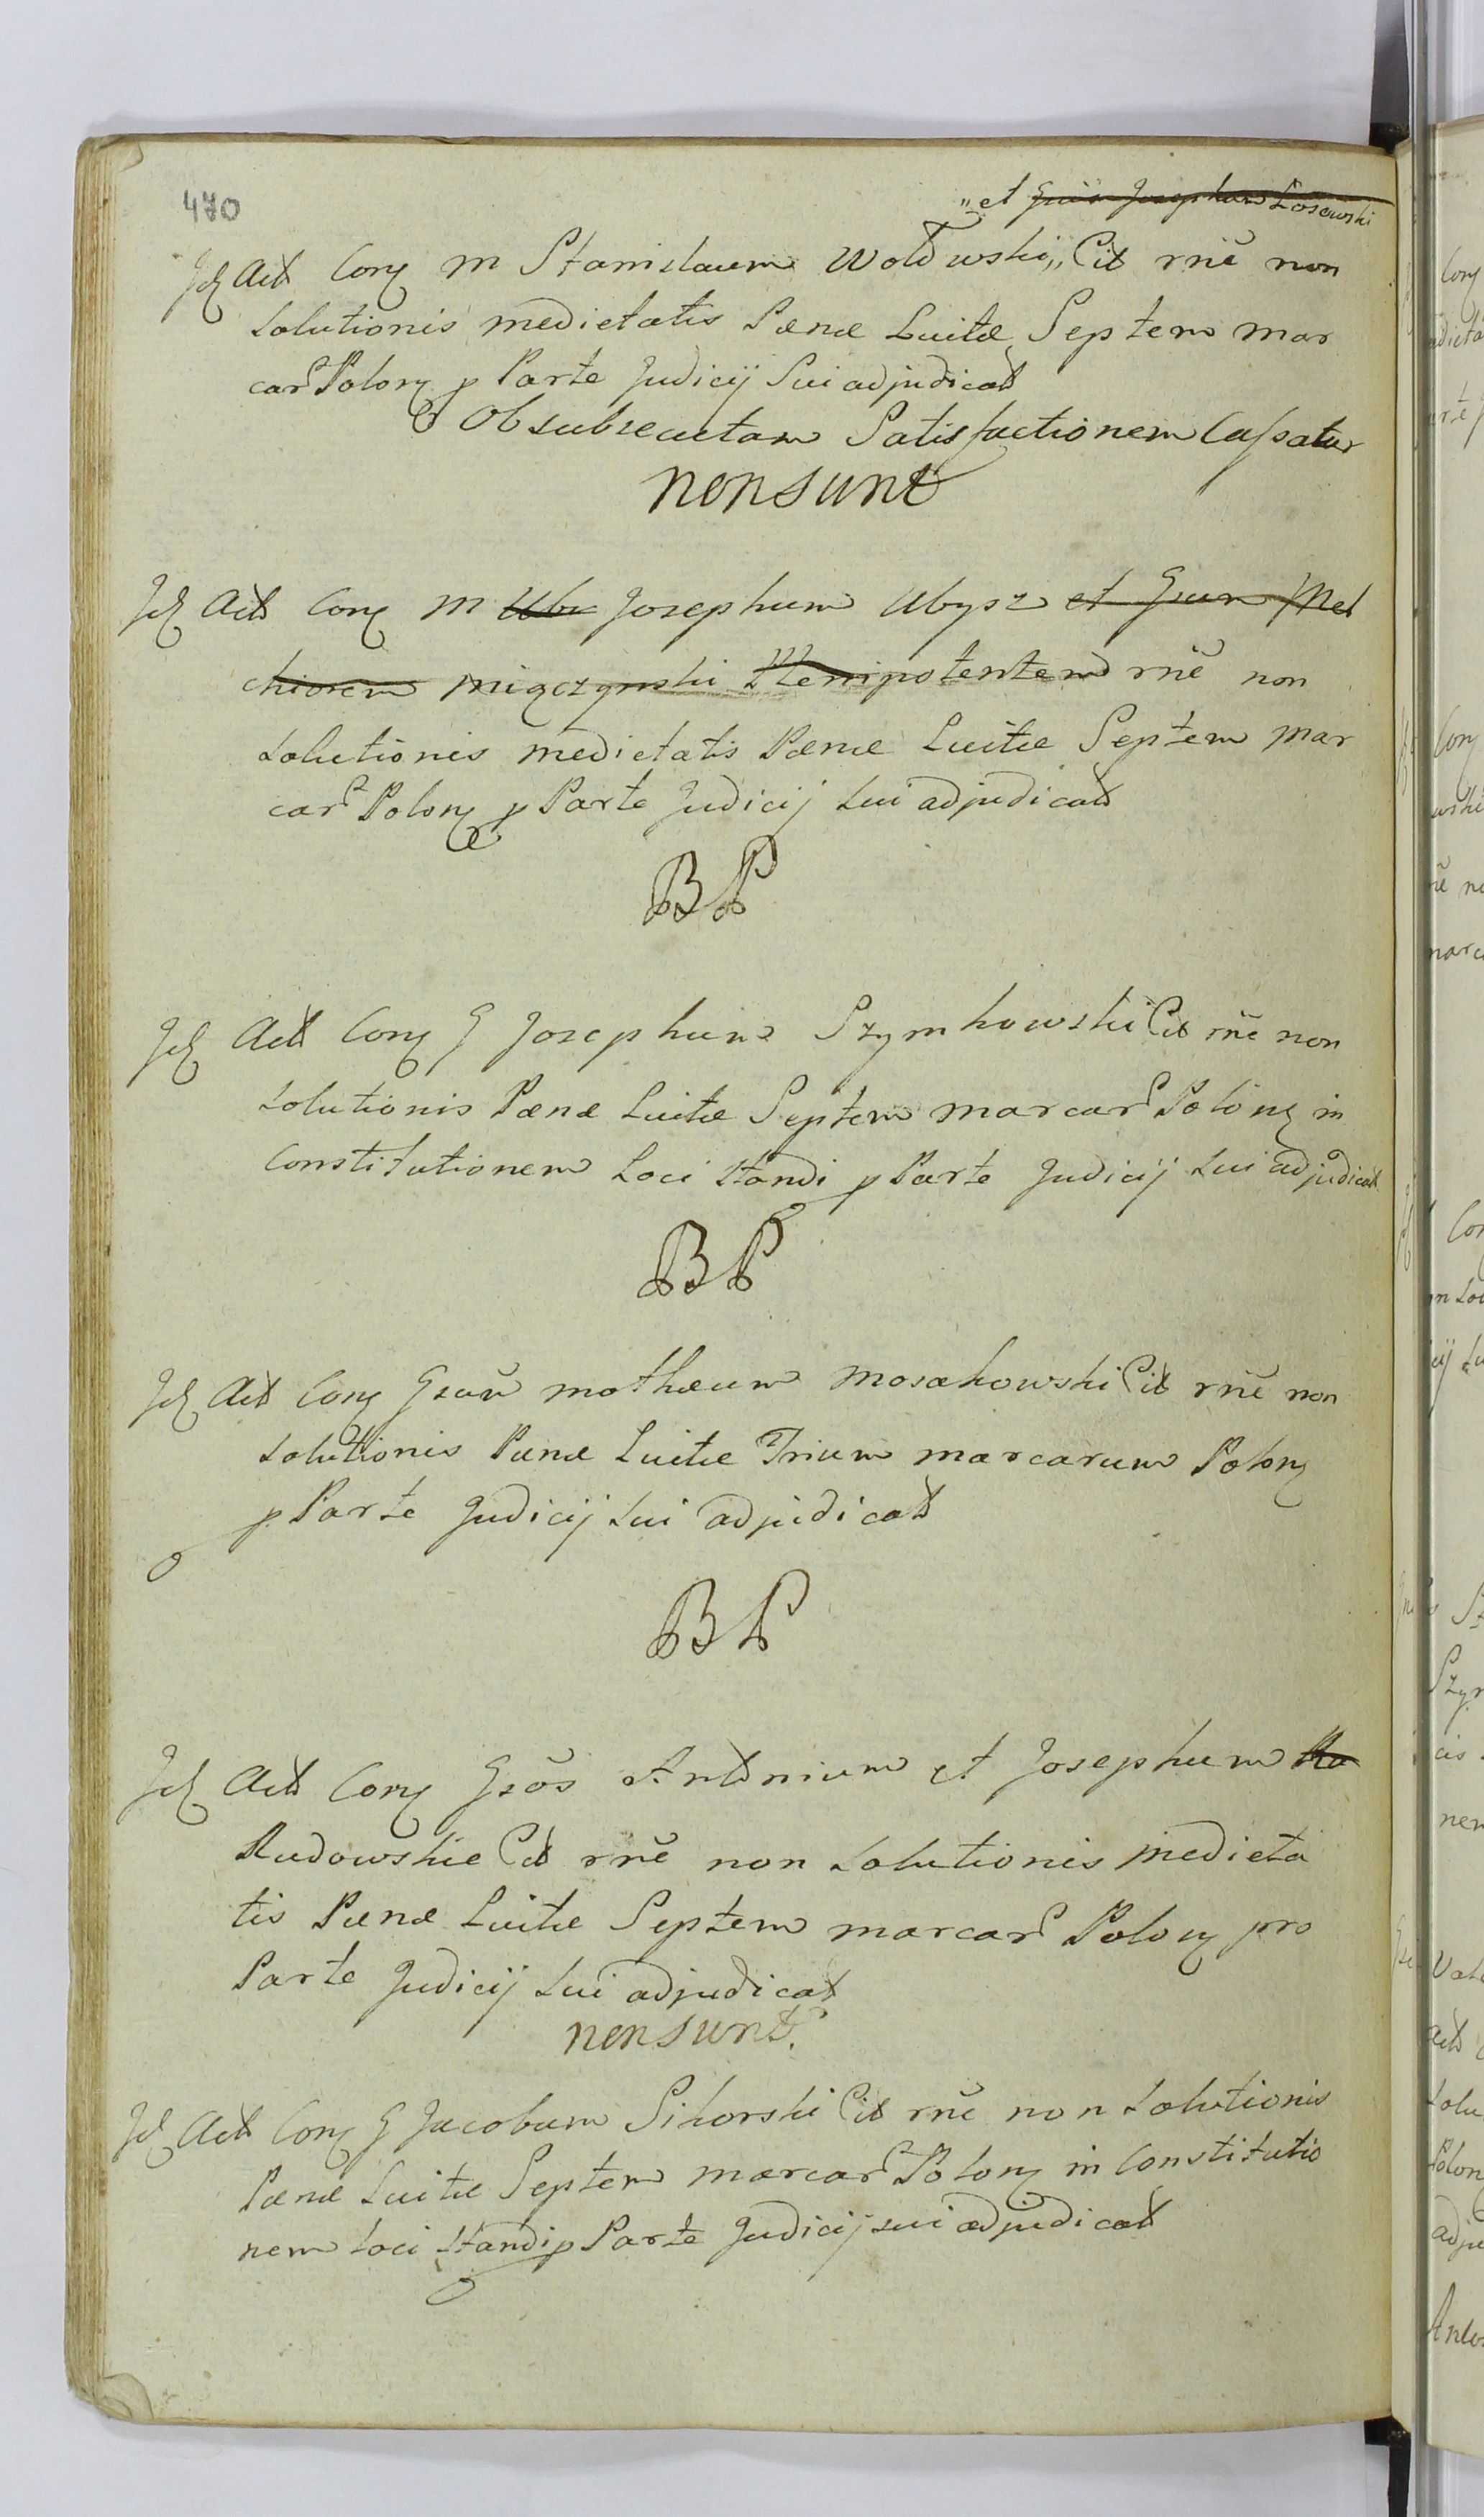 470
„et Gsum Josephum Łosowski
Id Act Conq M Stanislaum Wołdowski„ Cit rñe non
Solutionis medietatis Pænæ Luitæ Septem Mar
car Polonq p Parte Judicij Sui adjudicat
Ob subsecutam Satisfactionem Cassatur
non sunt
Id Act Conq M Uby Josephum Ubysz et Gsum Mel
chiorem Miączynski Plenipotentem rñe non
Solutionis medietatis Pænæ Luitæ Septem Mar
car Polonq p Parte Judicij Sui adjudicat
BP
Id Act Conq G Josephum Szymkowski Cit rñe non
Solutionis Pænæ Luitæ Septem Marcar Polonq in
Constitutionem Loci Standi p Parte Judicij Sui adjudicat
BP
Id Act Conq Gsum Mathæum Mosakowski Cit rñe non
Solutionis Pænæ Luitæ Trium Marcarum Polonq
p Parte Judicij Sui adjudicat
BP
Id Act Conq Gsos Antonium et Josephum Ru
Rudowskie Cit rñe non Solutionis Medieta
tis Pænæ Luitæ Septem Marcar Polonq pro
Parte Judicij Sui adjudicat
non sunt.
Id Act Conq G Jacobum Sikorski Cit rñe non Solutionis
Pænæ Luitæ Septem Marcar Polonq in Constitutio
nem Loci Standi p Parte Judicij sui adjudicat